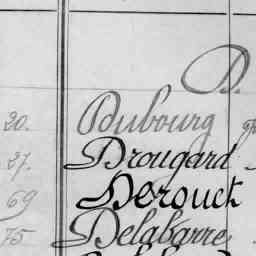 D.
20. Dubourg
27. Drougard
69 Derouck
75 Delabarre